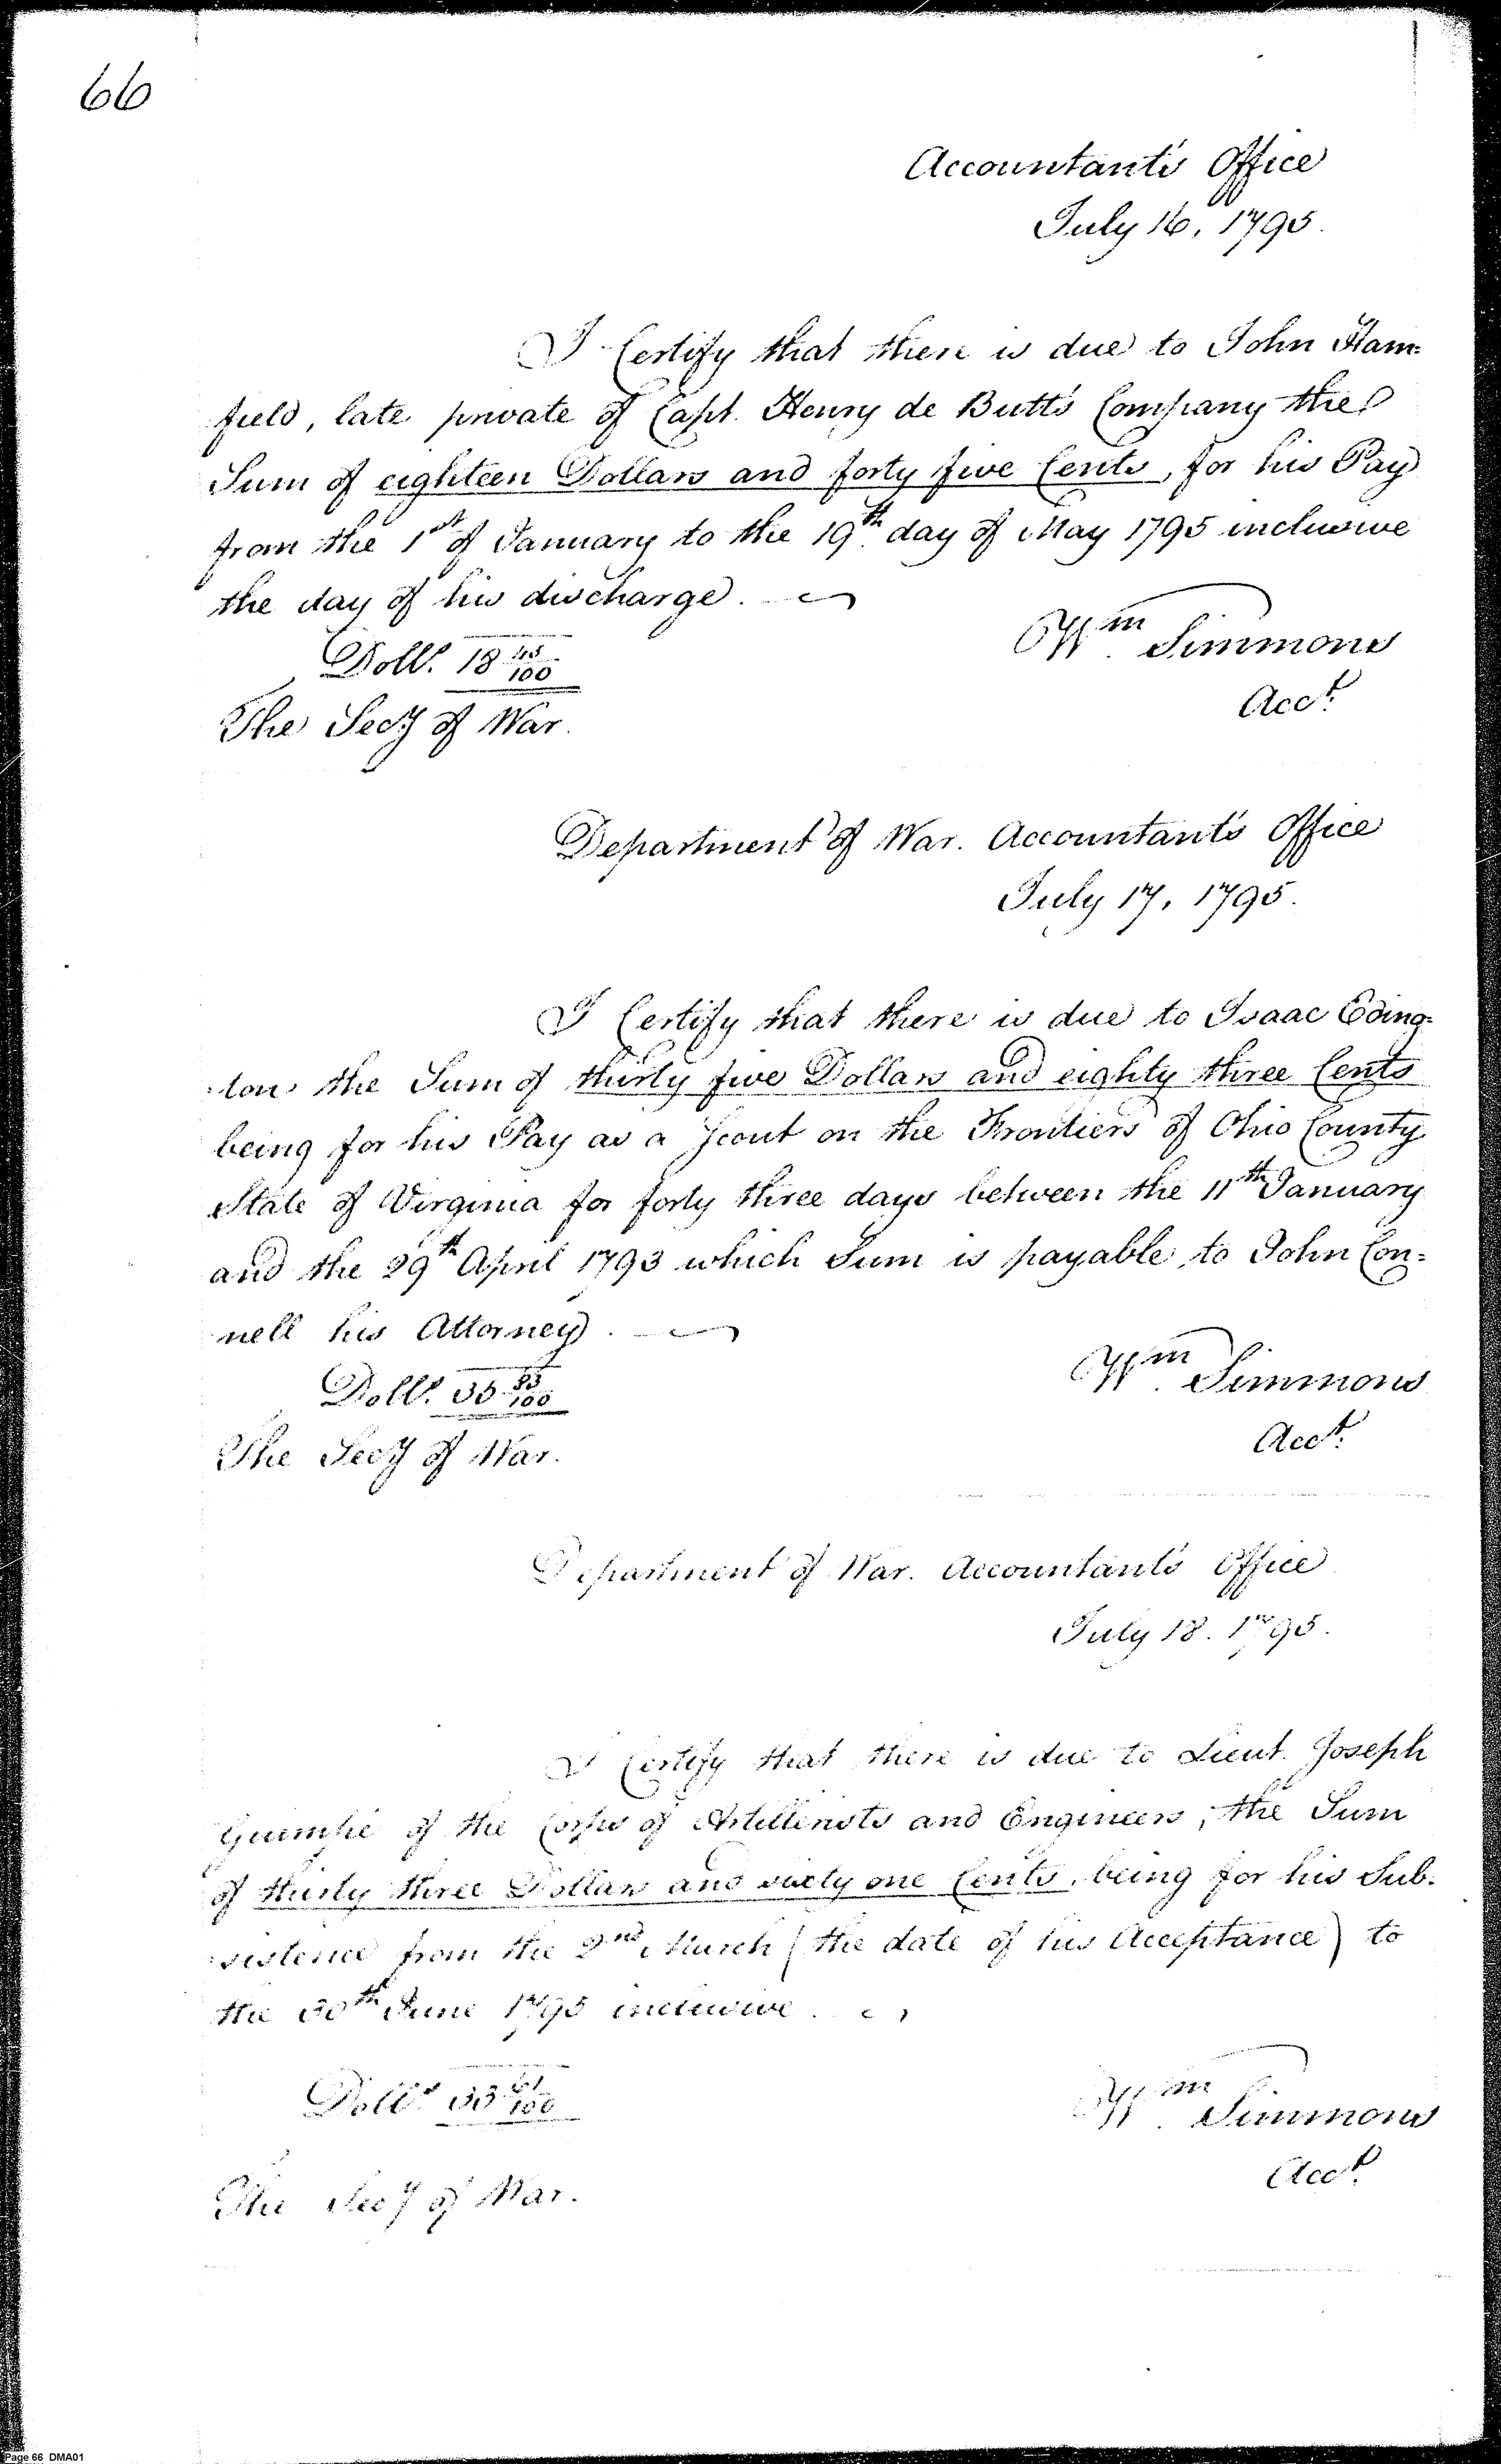 66
Accountant's Office
July 16, 1795.
I Certify that there is due to John Ham=
field, late private of Capt. Henry de Butts Company the
Sum of eighteen Dollars and forty five Cents, for his Pay
from the 1st of January to the 19th day of May 1795 inclusive
the day of his discharge.
Wm Simmons
Dolls. 18 45/100
Acct.
The Secy of War.
Department of War. Accountant's Office
July 17, 1795.
I Certify that there is due to Isaac Eding=
ton the Sum of thirty five Dollars and eighty three Cents
being for his Pay as a Scout on the Frontiers of Ohio County
State of Virginia for forty three days between the 11th January
and the 29th April 1793 which Sum is payable to John Con=
nell his Attorney.
Wm Simmons
Dolls. 35 83/100
Acct.
The Secy of War.
Department of War. Accountant's Office
July 18. 1795.
I Certify that there is due to Lieut. Joseph
Guimpé of the Corps of Artillerists and Engineers, the Sum
of thirty three Dollars and sixty one Cents, being for his Sub=
sistence from the 2nd March (the date of his Acceptance) to
the 30th June 1795 inclusive.
Dolls 33 61/100
Wm Simmons
Acct.
The Secy of War.
Page 66 DMA01